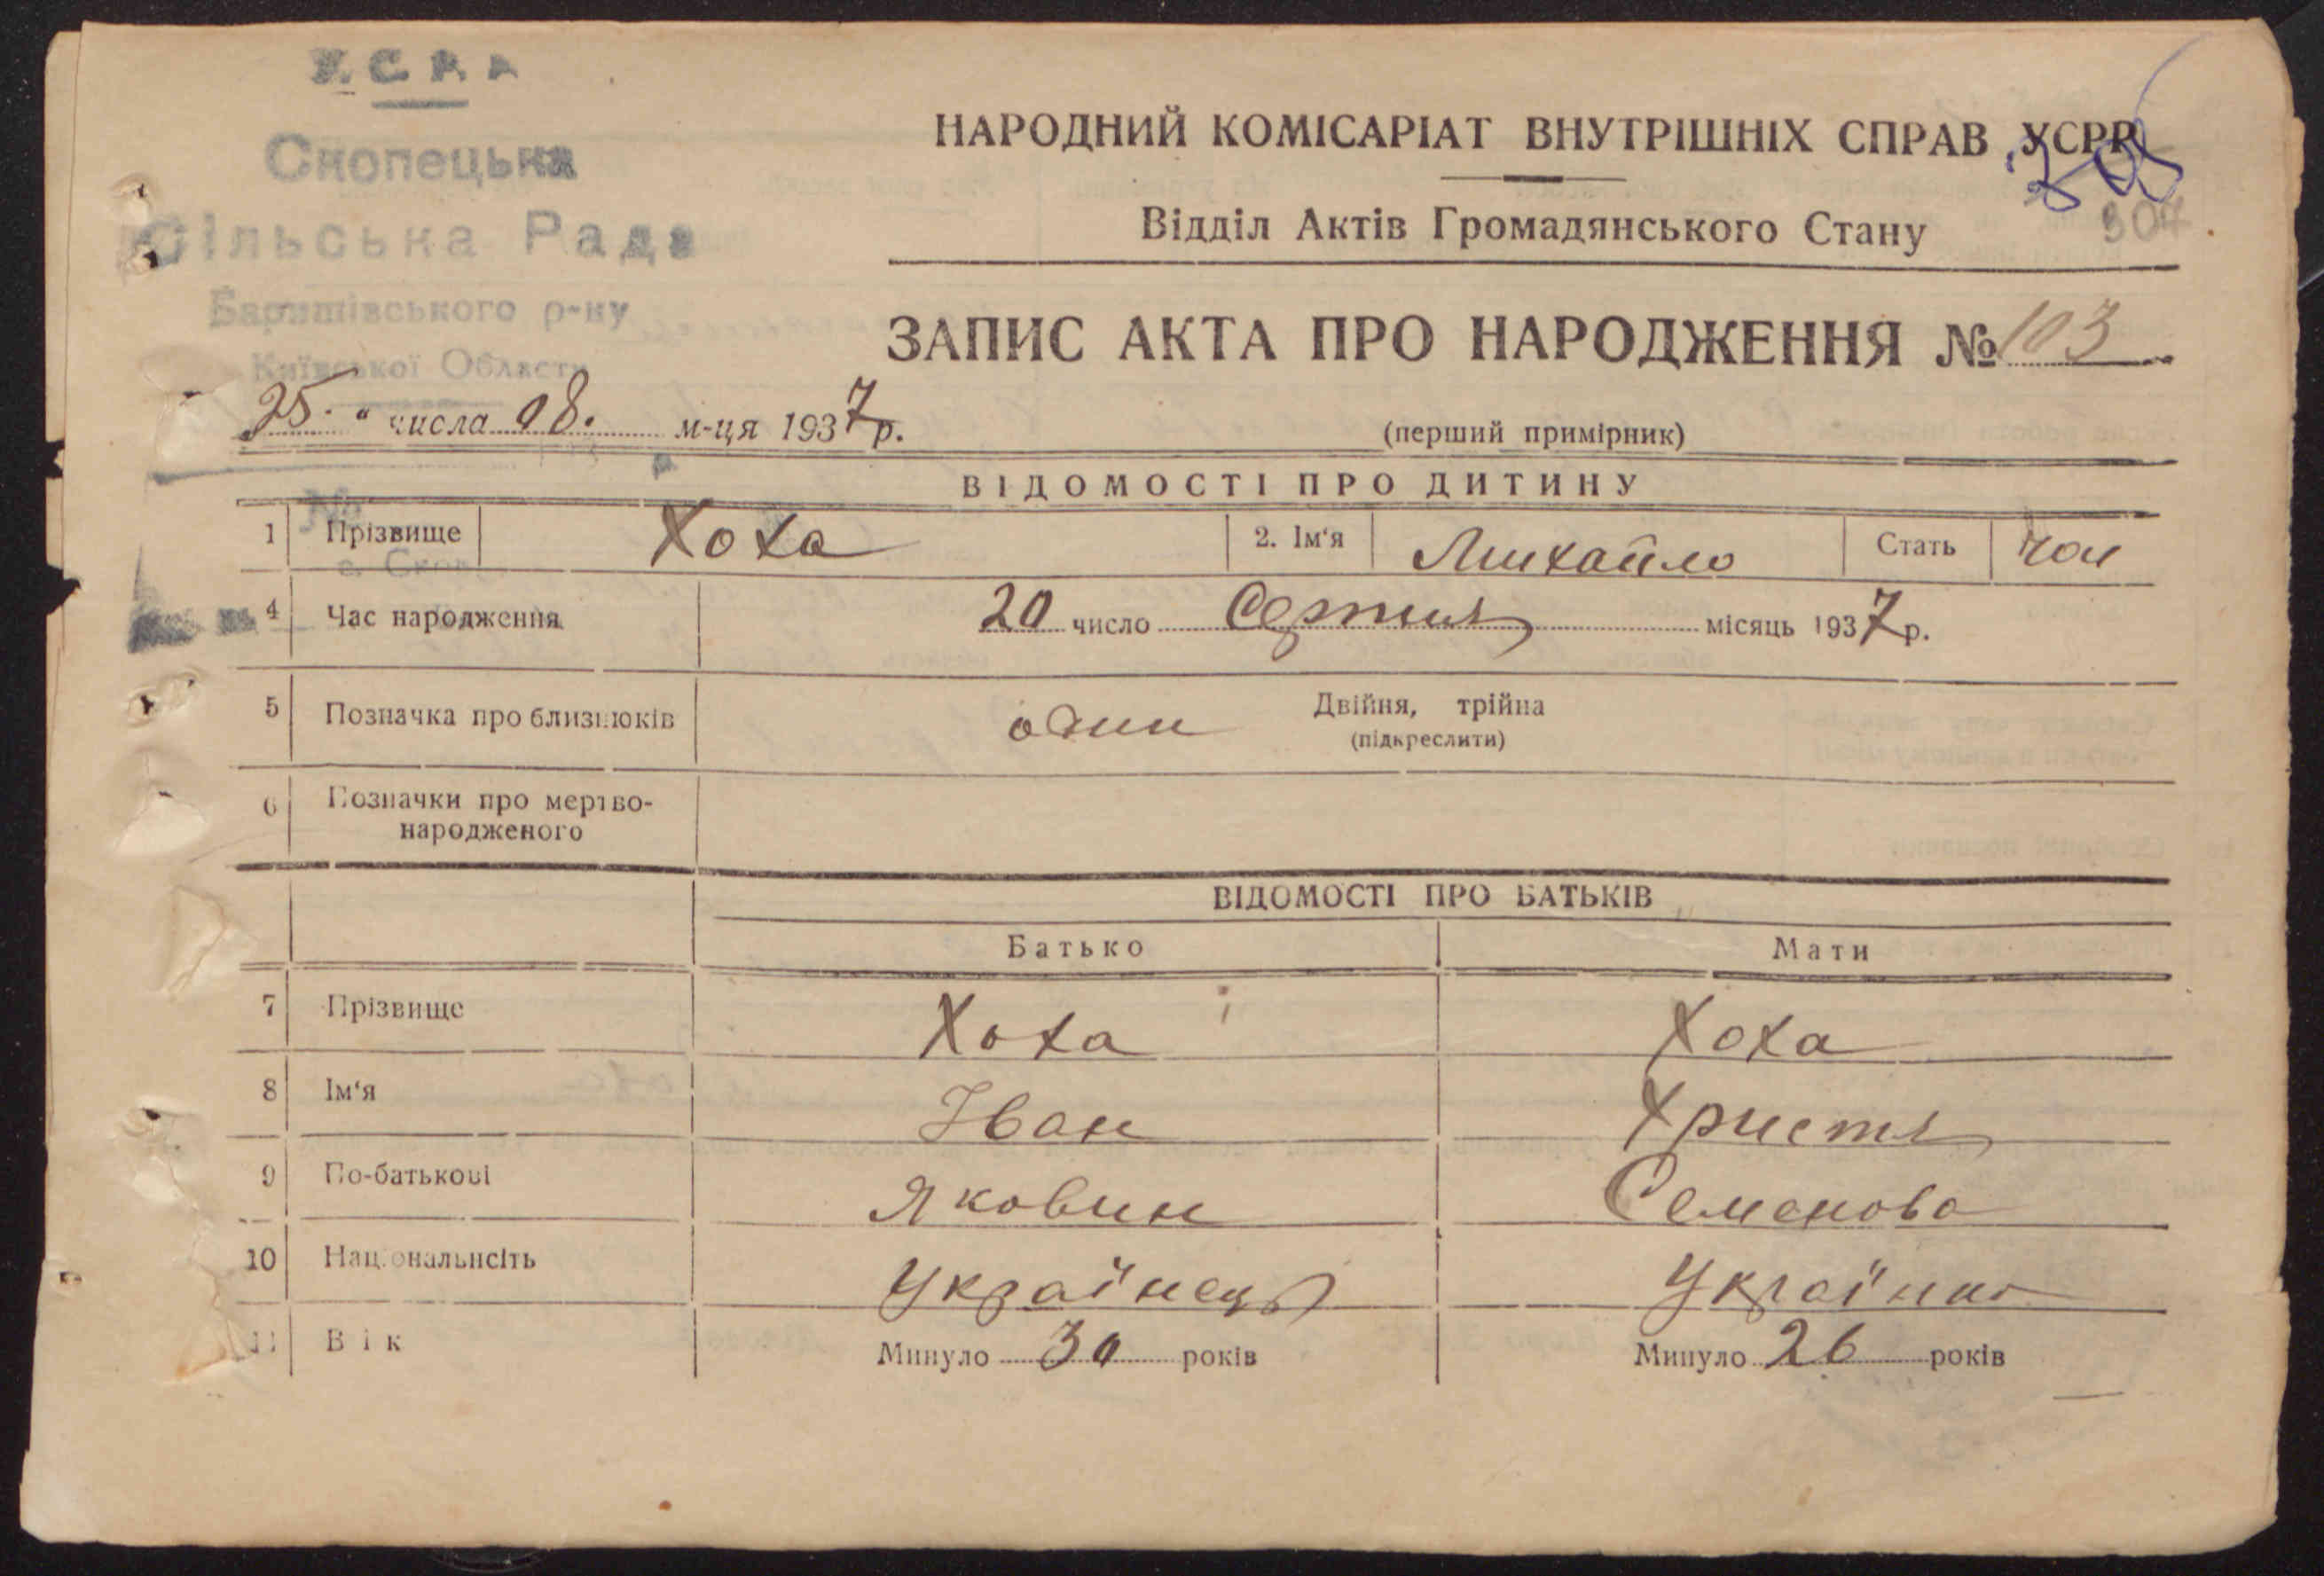 У.С.Р.Р
Скопецька
Сільська Рада
Баришівського р-ну
Київської Области
НАРОДНИЙ КОМІСАРІАТ ВНУТРІШНІХ СПРАВ УСРР
Відділ Актів Громадянського Стану
307
ЗАПИС АКТА ПРО НАРОДЖЕННЯ № 103
25. " числа 08. м-ця 1937 р.
(перший примірник)
ВІДОМОСТІ ПРО ДИТИНУ
1 Прізвище Хоха 2. Ім'я Михайло Стать чол
4 Час народження 20 число Серпня місяць 1937 р.
5 Позначка про близнюків один Двійня, трійна
(підкреслити)
6 Позначки про мертво-
народженого
ВІДОМОСТІ ПРО БАТЬКІВ
Батько Мати
7 Прізвище Хоха Хоха
8 Ім'я Іван Христя
9 По-батькові Яковин Семенова
10 Національнсіть Українець Українка
11 Вік Минуло 30 років Минуло 26 років